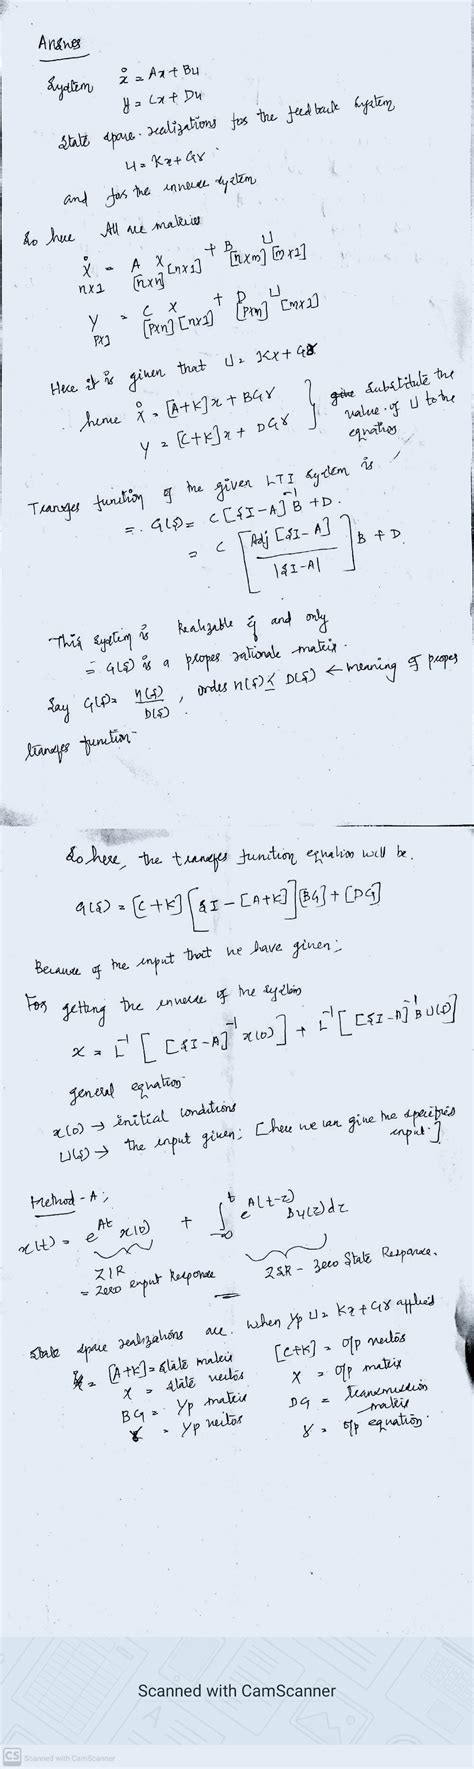 Answer
System ẋ = Ax + Bu
y = Cx + Du
State space realizations for the feedback system
u = Kx + Gr
and for the inverse system
So here All are matrices
Ẋ = A X + B U
n×1 [n×n] [n×1] [n×m] [m×1]
Y = C X + D U
P×1 [P×n] [n×1] [P×m] [m×1]
Here it is given that U = Kx + Gr
hence Ẋ = [A+K]x + BGr
Y = [C+K]x + DGr
Substitute the
value of U to the
equations
Transfer function of the given LTI system is
= G(s) = C[sI-A]⁻¹B + D.
= C [Adj [sI-A] / |sI-A|] B + D
This system is Realizable if and only
= G(s) is a proper rationale matrix.
Say G(s) = n(s)/D(s), order n(s) ≤ D(s) ← meaning of proper
transfer function
So here, the transfer function equation will be.
G(s) = [C+K] [sI-[A+K]] [BG] + [DG]
Because of the input that we have given;
For getting the inverse of the system
x = L⁻¹ [[sI-A]⁻¹ x(0)] + L⁻¹ [[sI-A]⁻¹ B U(s)]
general equation
x(0) → initial conditions
U(s) → the input given; [here we can give the specified
input.]
Method-A;
x(t) = e^{At} x(0) + ∫ e^{A(t-z)} Bu(z)dz
ZIR
= Zero input Response
ZSR - Zero State Response.
State space realizations are. when i/p U = Kx + Gr applied
ẋ = [A+K] = State matrix
x = State vector
BG = i/p matrix
r = i/p vector
[C+K] = o/p vector
x = o/p matrix
DG = transmission
matrix
y = o/p equation.
Scanned with CamScanner
CS Scanned with CamScanner